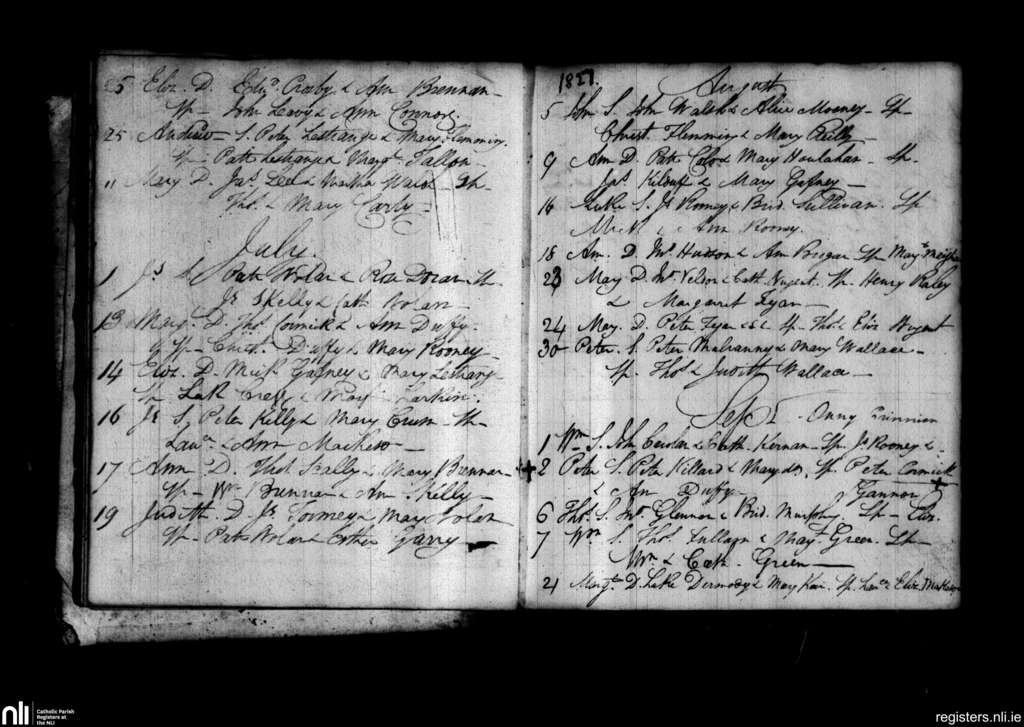 25 Eliz. D. Edwd. Crosby & Ann Brennan
Sp- John Leavy & Ann Connor.
25 Andrew - S. Peter Lestrange & Mary Flemming.
Sp. Patt Lestrange & Margt. Fallon
11 Mary D. Jas. Lee & Martha Walsh - Sp.
Thos. & Mary Carty -
July.
1 Js. S. Patt Nolan & Rose Doran Sp.
Js. Skelly & Cath Nolan
13 Mary. D. Thos. Cormick & Ann Duffy.
Sp- Christ. Duffy & Mary Rooney
14 Eliz. D. Mick Gafney & Mary Lestrang
Sp. Luke & Mary Larkin.
16 Js. S. Peter Kelly & Mary Crum Sp.
Laue. & Ann Mathews
17 Ann D. Thos. Scally & Mary Brennan
Sp- Wm. Brennan & Ann Kelly
19 Judith D. Js. & May Nolan
Sp- Patt Nolan & Esther Garry
1821.
August
5 John S. John Walsh & Alice Mooney - Sp
Christ Flemming & Mary Reilly
9 Ann D. Patt & Mary Houlahan - Sp.
Jas. Kilduff & Mary Gafney
16 Luke S. Js. Rooney & Brid. Sullivan. Sp
Mick & Ann Rooney.
18 Ann. D. Hudson & Ann Sp. Mayt.
23 May D. & Cath Nugent. Sp. Henry Raley
& Margaret Egan
24 May. D. Peter & Sp- Thos. & Eliz Nugent
30 Peter. S. Peter Mulvanny & Mary Wallace -
Sp. Thos. & Judith Wallace
Sept. - Onny
1 Wm. S. John & Cath Kernan. Sp. Js. Rooney &
+ 2 Peter S. Peter Killard & Mary do. Sp. Peter Cormick +
& Ann Duffy - Gannon
6 Thos. S. Glennon & Brid. Murphy. Sp- Eliz.
7 Wm. S. Thos. & Mayt. Green. Sp
Wm. & Cath. Green
21 Margt. D. Luke Dermody & May Kear. Sp. Laue. Eliz. Mathews
nli
Catholic Parish
Registers at
the NLI
registers.nli.ie